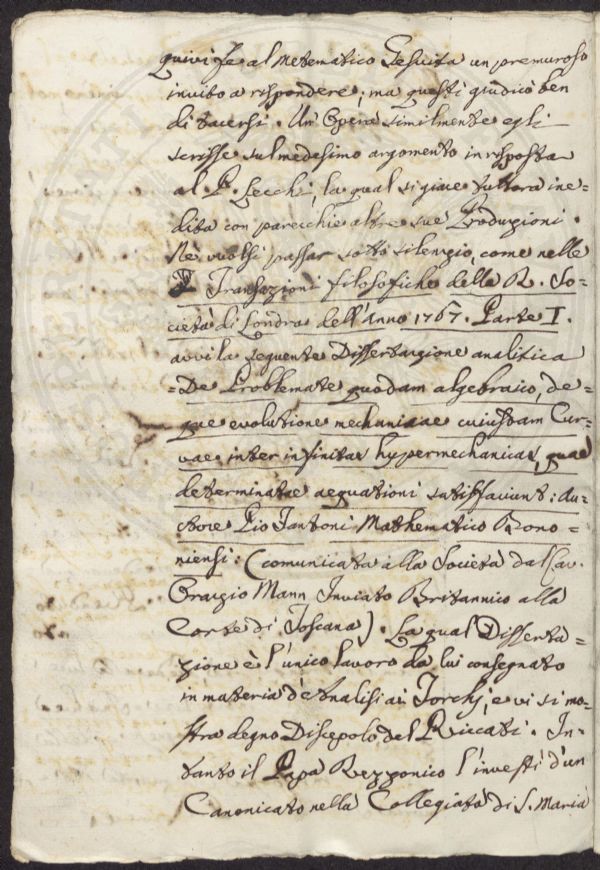 quivi fe al Metematico Gesuita un premuroso
invito a rispondere; ma questi giudicò ben
di tacersi. Un' Opera similmente egli
scrisse sul medesimo argomento in risposta
al P. Lecchi, la qual si giace tuttora ine=
dita con parecchie altre sue Produzioni.
Nè vuolsi passar sotto silenzio, come nelle
Transazioni filosofiche della R. So=
cietà di Londra dell'Anno 1767. Parte I.
avvi la seguente Dissertazione analitica
=De Problemate quodam algebraico, de=
que evolutione mechanicae cuiusdam Cur=
vae inter infinitas hypermechanicas, quae
determinatae aequationi satisfaciunt: au=
ctore Pio Fantoni Mathematico Bono=
niensi: (comunicata alla Società dal Cav.
Orazio Mann Inviato Britannico alla
Corte di Toscana). La qual Disserta=
zione è l'unico lavoro da lui consegnato
in materia d'Analisi ai Torchj, e vi si mo=
stra degno Discepolo del Riccati. In=
tanto il Papa Rezzonico l'investì d'un
Canonicato nella Collegiata di S. Maria